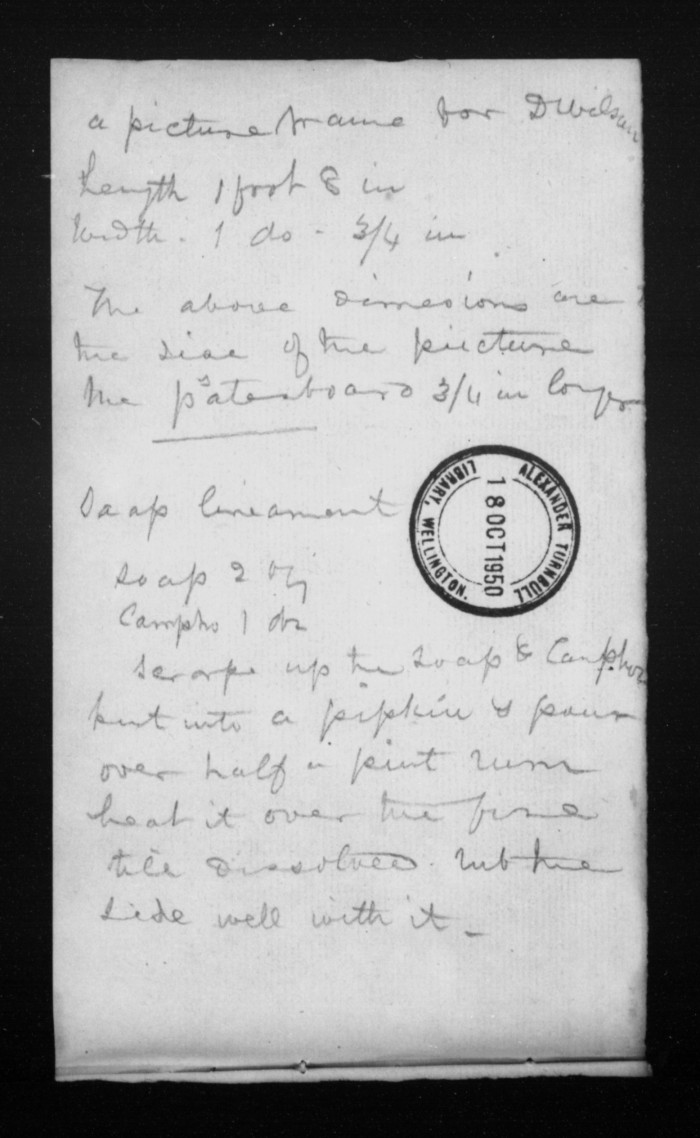 a picture frame for D Wilson
Length 1 foot 8 in
Width - 1 do - 3/4 in
The above dimesions are
the size of the picture
the pasteboard 3/4 in longer
Soap lineament
Soap 2 oz
Campho 1 do
scrape up the soap & Camphor
put into a pipkin & pour
over half a pint rum
heat it over the fire
till dissolved. rub the
side well with it -
ALEXANDER TURNBULL
18 OCT 1950
LIBRARY, WELLINGTON.